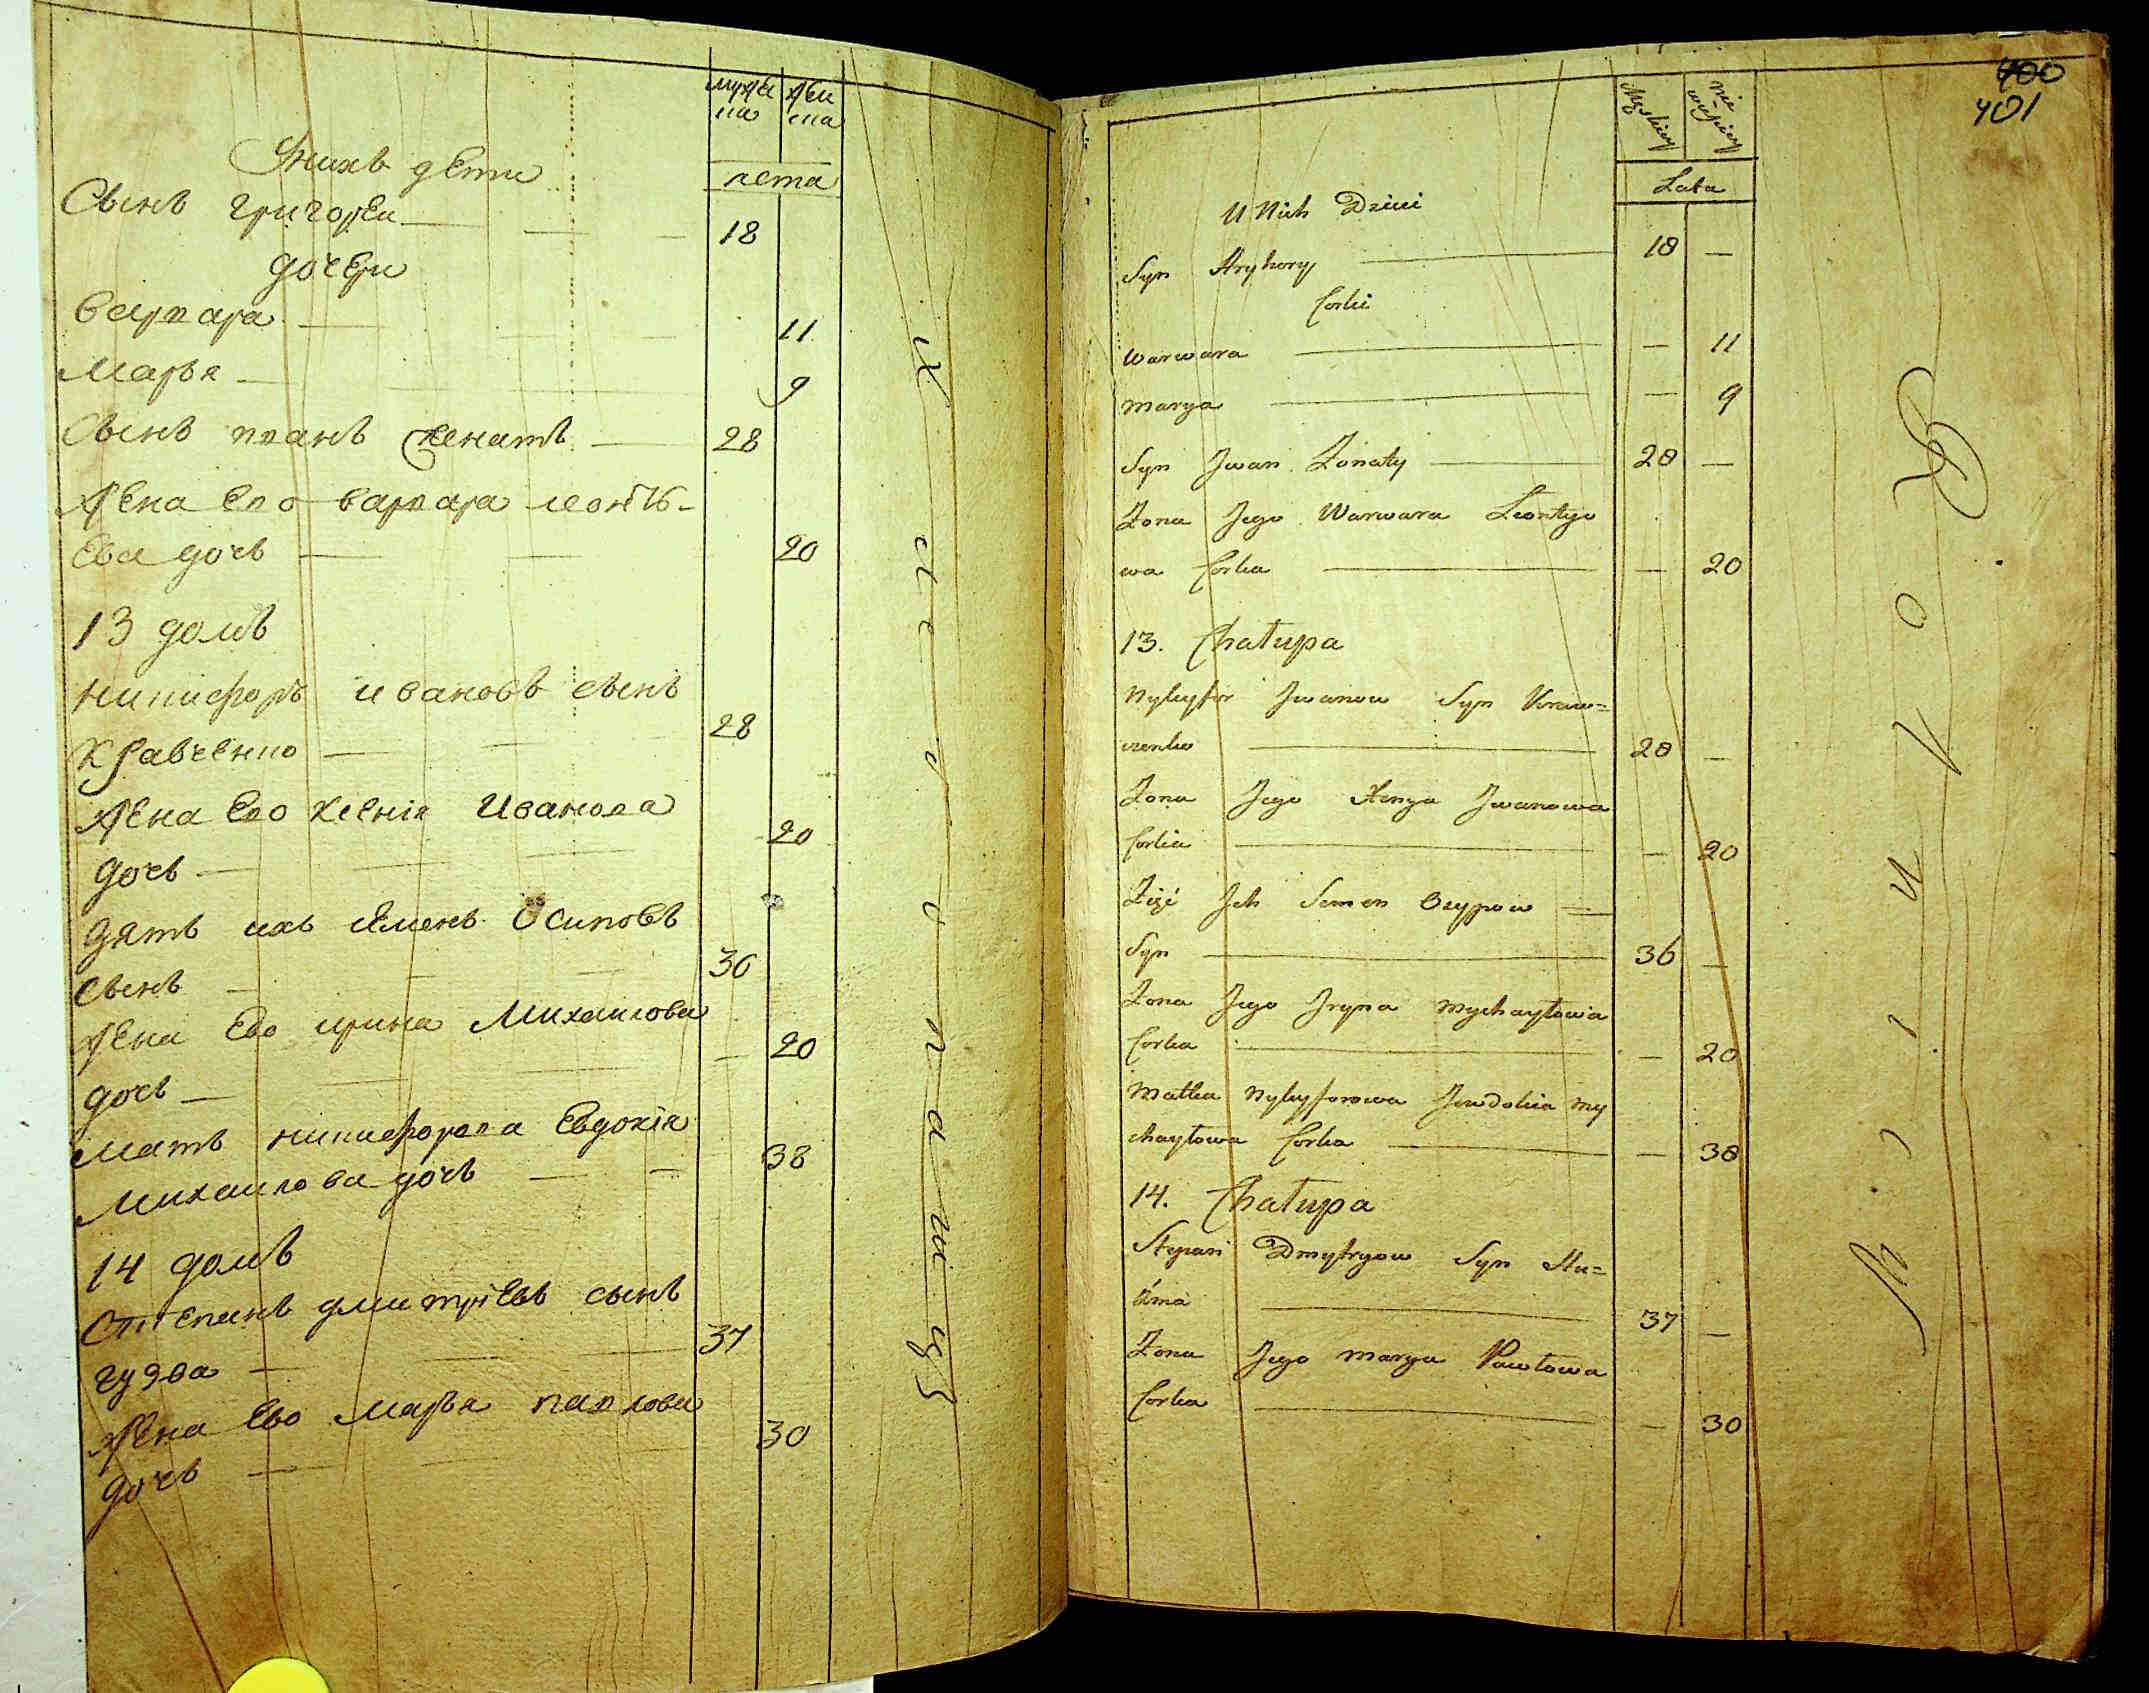 мужѣ
ска
жен
ска
лета
Унихъ дѣти
Сынъ григорѣи 18
дочѣри
варвара 11
Марья 9
Сынъ иванъ женатъ 28
Жѣна Ево варвара леонть-
Ева дочь 20
13 домъ
никифоръ ивановъ сынъ
Кравчѣнко 28
Жѣна Ево Ксенія Иванова
дочь 20
Зять ихъ семенъ Осиповъ
сынъ 36
Жѣна Ево ирина Михаилова
дочь 20
Мать никифорова Евдокія
Михаилова дочь 38
14 домъ
Степанъ дмитріевъ сынъ
гузва 37
Жѣна Ево марья павлова
дочь 30
400
401
Męzkiey
Nie
wieściey
Lata
U Nich Dzieci
Syn Hryhory 18 —
Corki
Warwara — 11
Marya — 9
Syn Jwan Żonaty 28 —
Żona Jego Warwara Leontyo
wa Corka — 20
13. Chałupa
Nykyfor Jwanow Syn Kraw=
czenko 28 —
Żona Jego Xenya Jwanowa
Corka — 20
Zięć Jch Semen Osypow
Syn 36 —
Żona Jego Jryna Mychayłowa
Corka — 20
Matka Nykyforowa Jewdokia My
chayłowa Corka — 38
14. Chałupa
Stepan Dmytryow Syn Hu=
37 —
Żona Jego Marya Pawłowa
Corka — 30